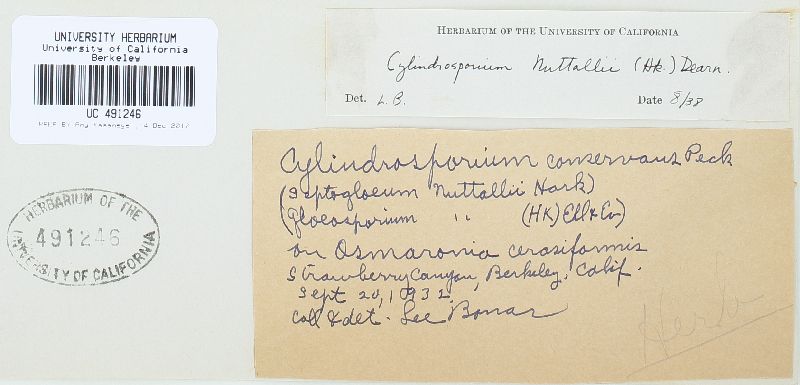 UNIVERSITY HERBARIUM
University of California
Berkeley
UC 491246
4 Dec 2017
HERBARIUM OF THE
491246
UNIVERSITY OF CALIFORNIA
HERBARIUM OF THE UNIVERSITY OF CALIFORNIA
Cylindrosporium Nuttallii (Hk.) Dearn.
Det. L.B. Date 8/38
Cylindrosporium conservans Peck
(Septogloeum Nuttallii Hark)
(Gloeosporium " (HK) Ell & Ev)
on Osmaronia cerasiformis
Strawberry Canyon, Berkeley, Calif.
Sept 20, 1932
Coll & det. Lee Bonar
Herb